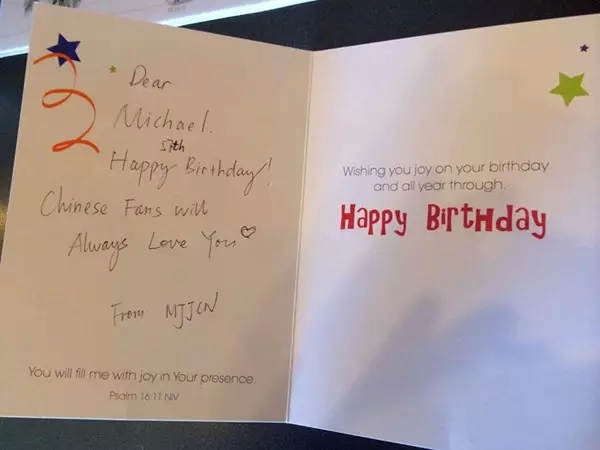 Dear
Michael.
57th
Happy Birthday!
Chinese Fans will
Always Love You♡
From MJJCN
You will fill me with joy in Your presence.
Psalm 16:11 NIV
Wishing you joy on your birthday
and all year through.
Happy Birthday